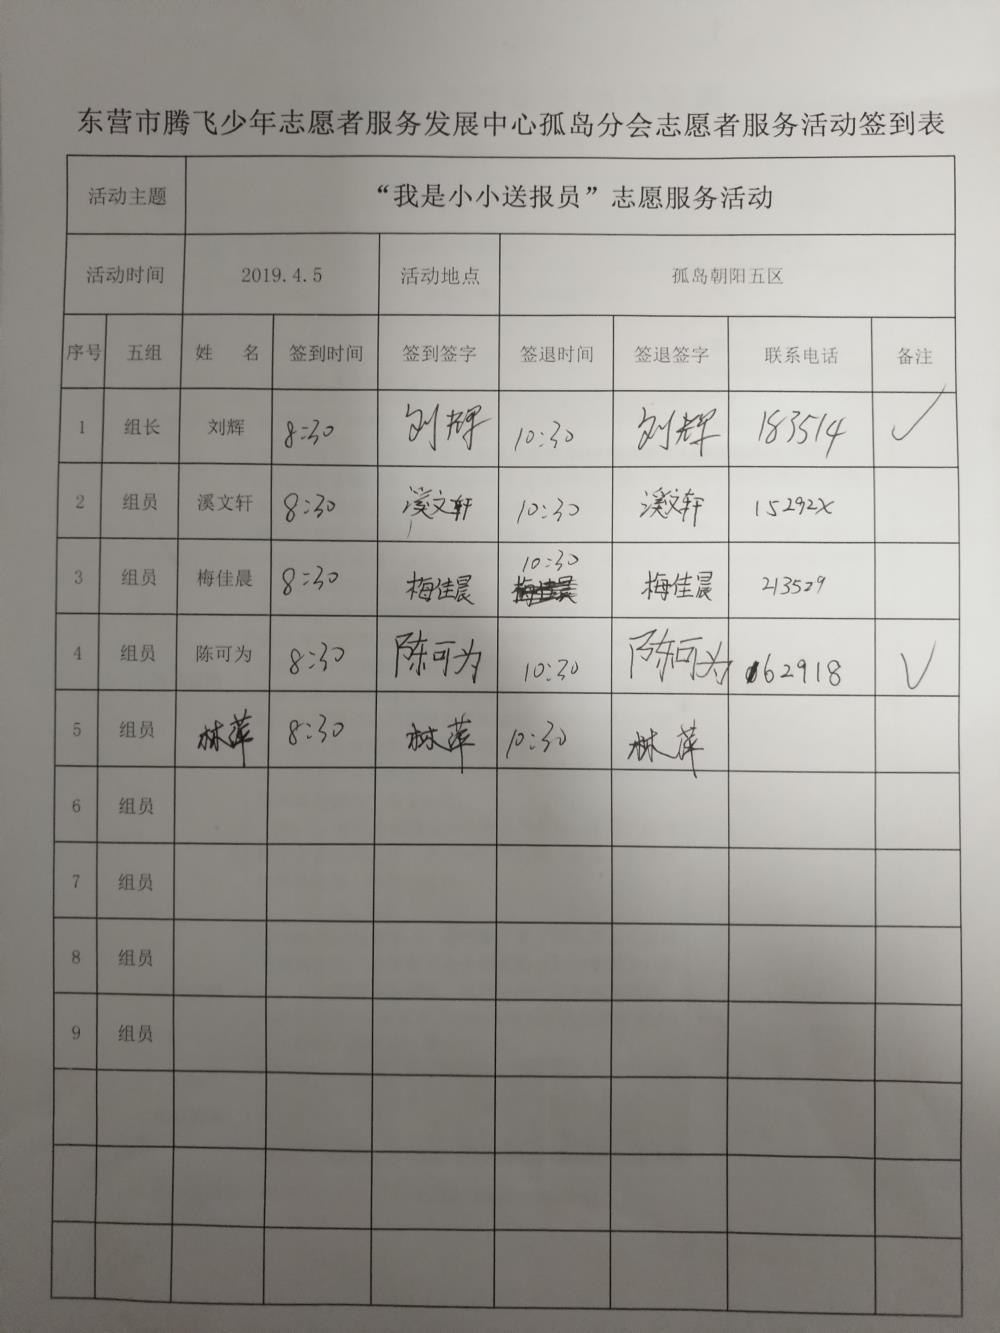 东营市腾飞少年志愿者服务发展中心孤岛分会志愿者服务活动签到表
活动主题 “我是小小送报员”志愿服务活动
活动时间 2019.4.5 活动地点 孤岛朝阳五区
序号 五组 姓 名 签到时间 签到签字 签退时间 签退签字 联系电话 备注
1 组长 刘辉 8:30 刘辉 10:30 刘辉 183514 ✓
2 组员 溪文轩 8:30 溪文轩 10:30 溪文轩 15292X
3 组员 梅佳晨 8:30 梅佳晨 10:30 梅佳晨 213529
4 组员 陈可为 8:30 陈可为 10:30 陈可为 162918 ✓
5 组员 林萍 8:30 林萍 10:30 林萍
6 组员
7 组员
8 组员
9 组员